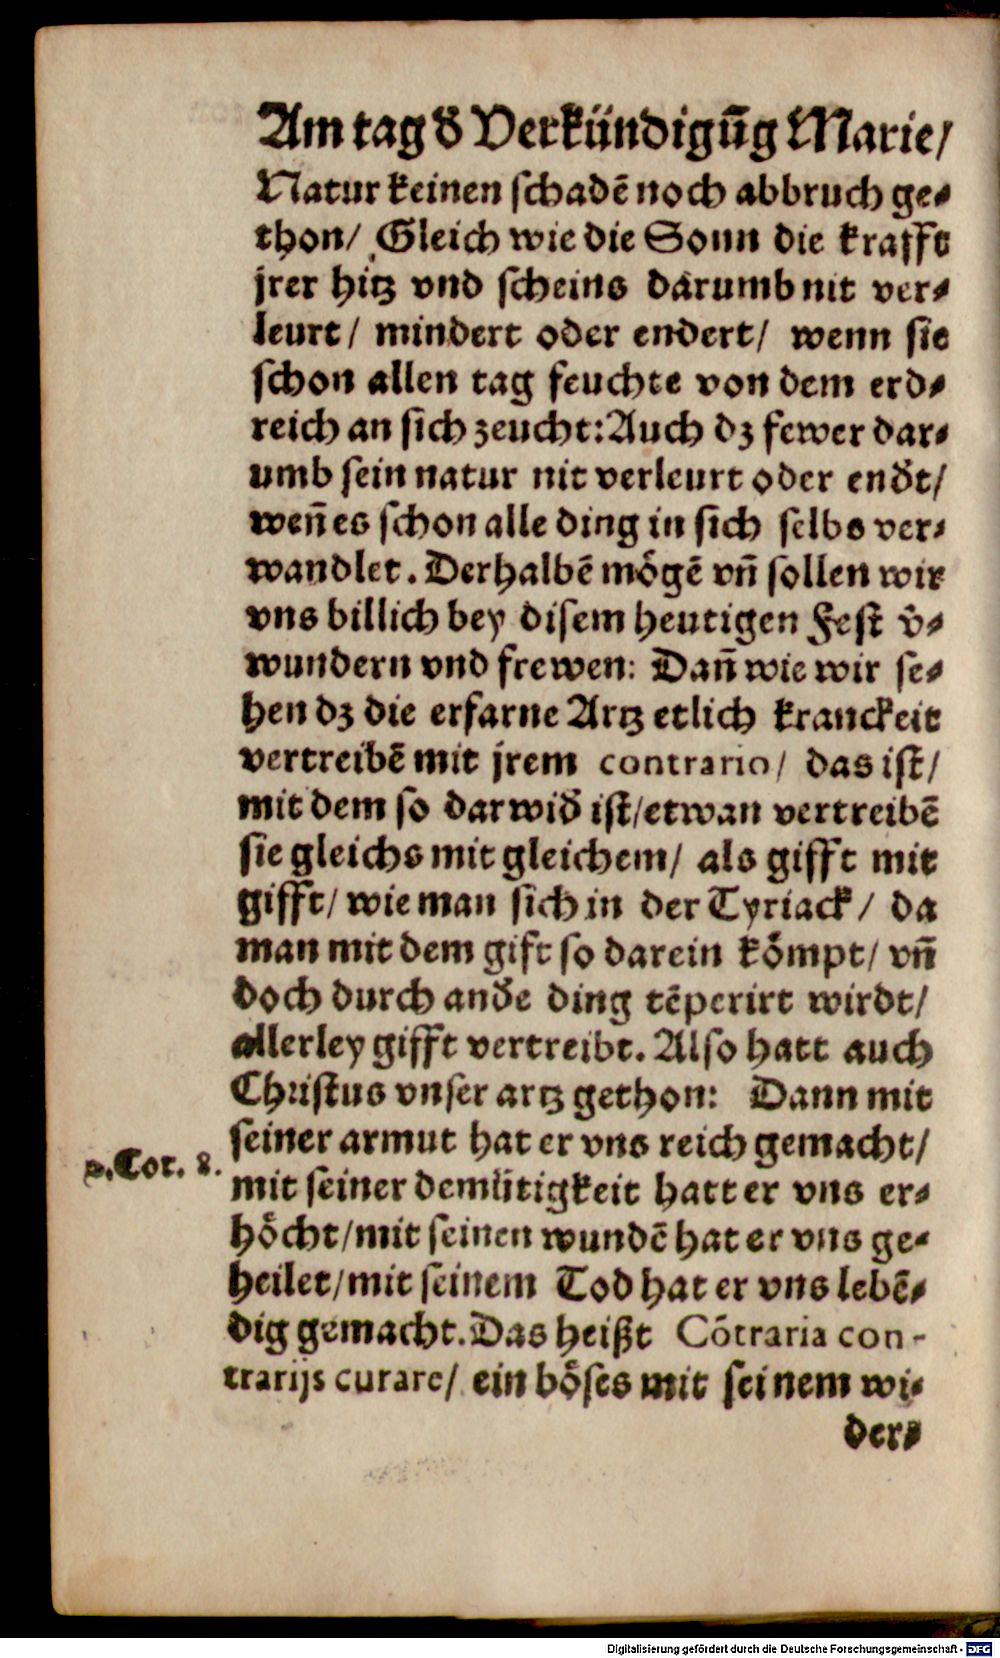 Am tag đ Verkündigūg Marie/
Natur keinen schadē noch abbruch ge-
thon/ Gleich wie die Sonn die krafft
jrer hitz vnd scheins darumb nit ver-
leurt/ mindert oder endert/ wenn sie
schon allen tag feuchte von dem erd-
reich an sich zeucht: Auch dz fewer dar-
umb sein natur nit verleurt oder endt/
weñ es schon alle ding in sich selbs ver-
wandlet. Derhalbē mögē vñ sollen wir
vns billich bey disem heutigen Fest v̄-
wundern vnd frewen: Dañ wie wir se-
hen dz die erfarne Artz etlich kranckeit
vertreibē mit jrem contrario/ das ist/
mit dem so darwiđ ist/ etwan vertreibē
sie gleichs mit gleichem/ als gifft mit
gifft/ wie man sich in der Tyriack/ da
man mit dem gift so darein kömpt/ vñ
doch durch anđe ding tēperirt wirdt/
allerley gifft vertreibt. Also hatt auch
Christus vnser artz gethon: Dann mit
seiner armut hat er vns reich gemacht/
2. Cor. 8.
mit seiner demütigkeit hatt er vns er-
höcht/ mit seinen wundē hat er vns ge-
heilet/ mit seinem Tod hat er vns lebē-
dig gemacht. Das heißt Cōtraria con-
trarijs curare/ ein böses mit seinem wi-
der-
Digitalisierung gefördert durch die Deutsche Forschungsgemeinschaft - DFG